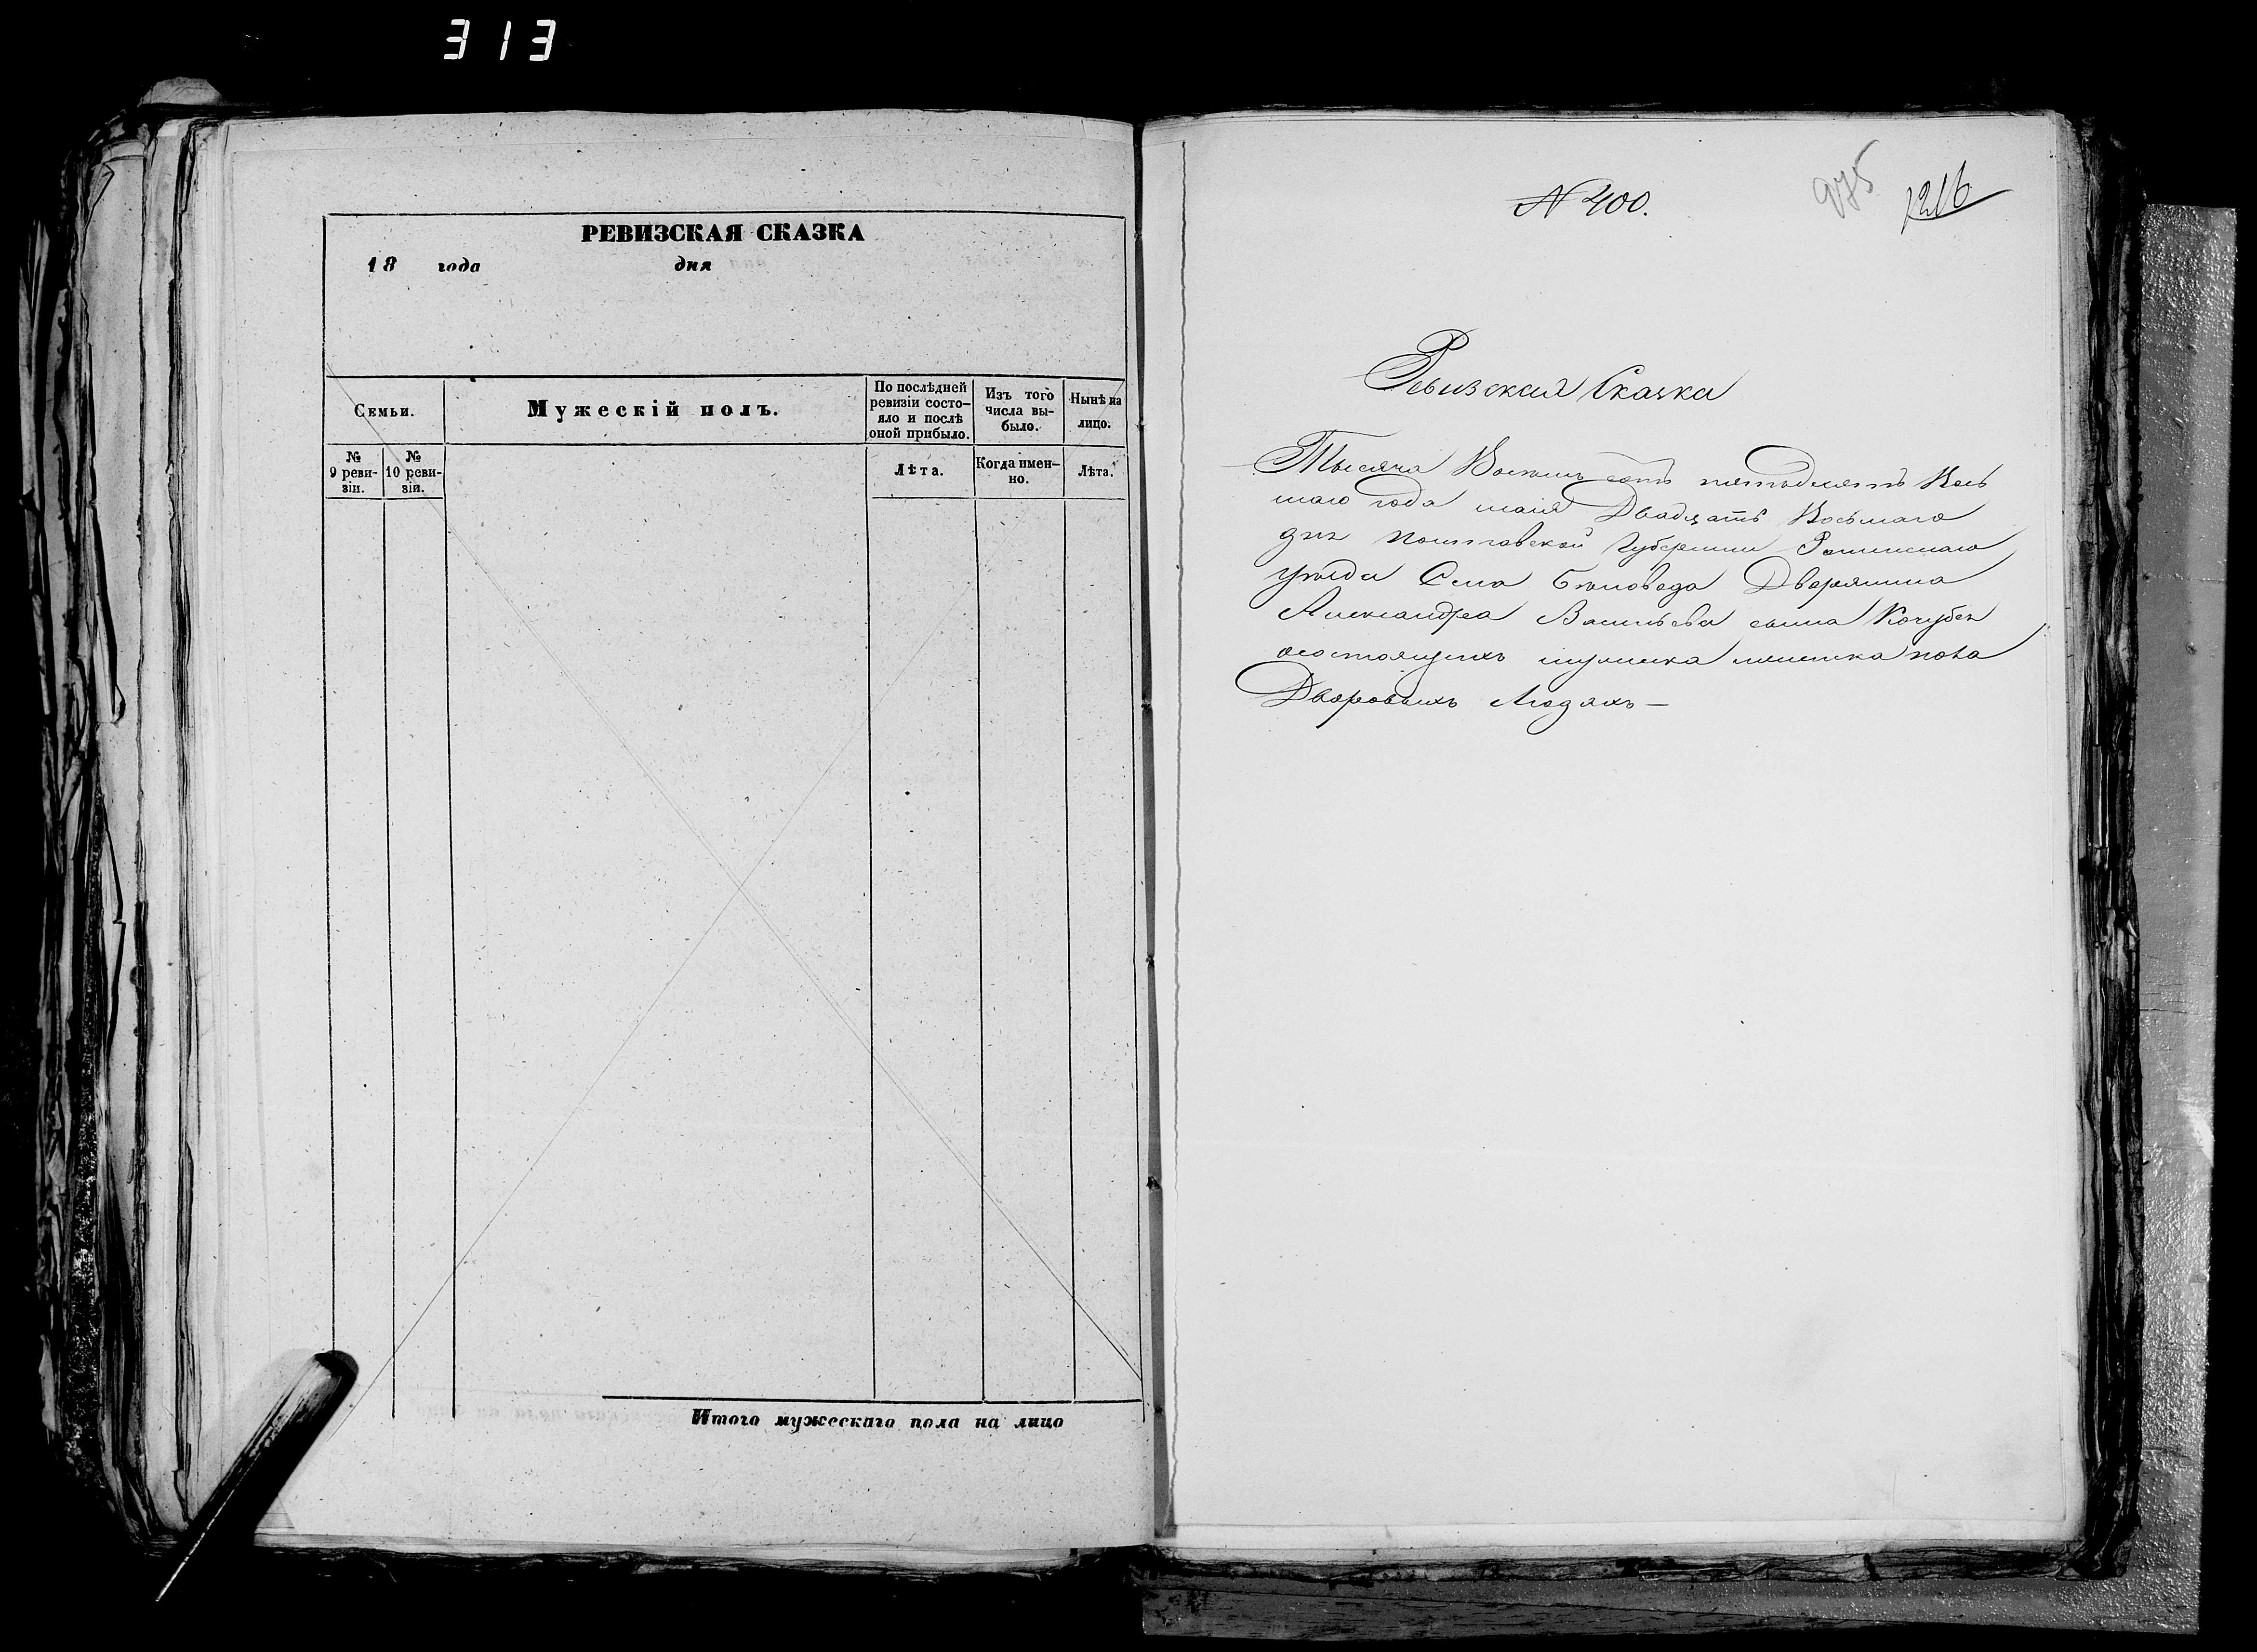 313
РЕВИЗСКАЯ СКАЗКА
18 года дня
Семьи.
Мужескій полъ.
По послѣдней
ревизіи состо-
яло и послѣ
оной прибыло.
Изъ того
числа вы-
было.
Нынѣ на
лицо.
№
9 реви-
зіи.
№
10 реви-
зіи.
Лѣта.
Когда имен-
но.
Лѣта.
Итого мужескаго пола на лицо
N 400.
975
1216
Ревизская Сказка
Тысяча Восемь сотъ пятьдесятъ Вось
маго года маія Двадцать Восьмаго
дня Полтавской Губерніи Роменскаго
уѣзда Села Дворянина
Александра Васильева сына Кочубея
состоящихъ мужеска женска пола
Дворовыхъ Людяхъ —